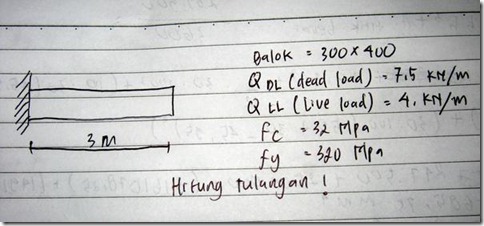 Balok = 300 x 400
Q DL (dead load) = 7.5 KN/m
Q LL (Live load) = 4. KN/m
fc = 32 Mpa
3 m
fy = 320 Mpa
Hitung tulangan !